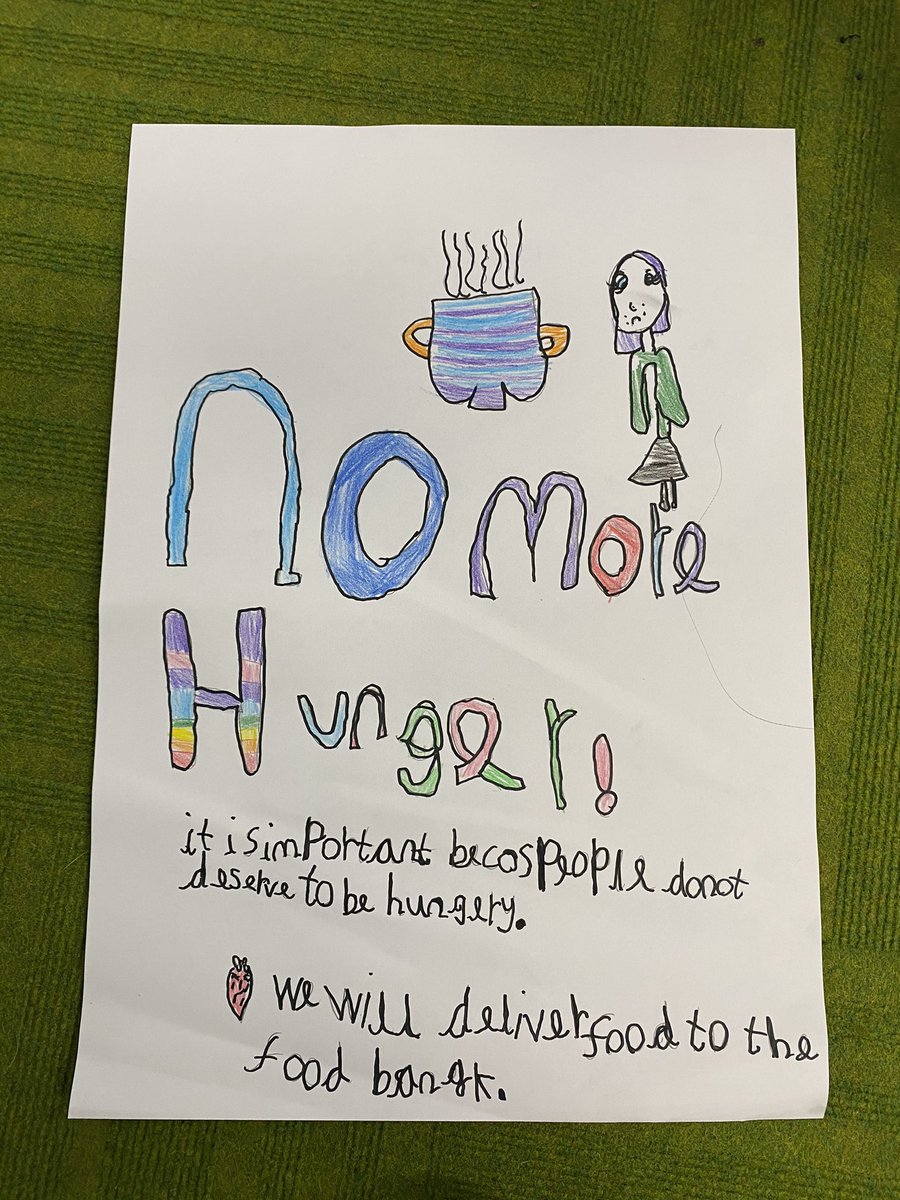 no more
Hunger!
it is important becos people do not
deserve to be hungery.
we will deliver food to the
food bangk.